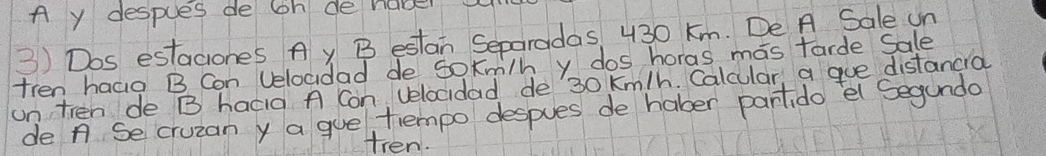 A y después de 6h de haber
3) Dos estaciones A y B están Separadas 430 Km. De A Sale un
tren hacia B Con Velocidad de 50Km/h y dos horas más tarde Sale
un tren de B hacia A Con velocidad de 30 Km/h. Calcular a que distancia
de A Se cruzan y a que tiempo despues de haber partido el Segundo
tren.